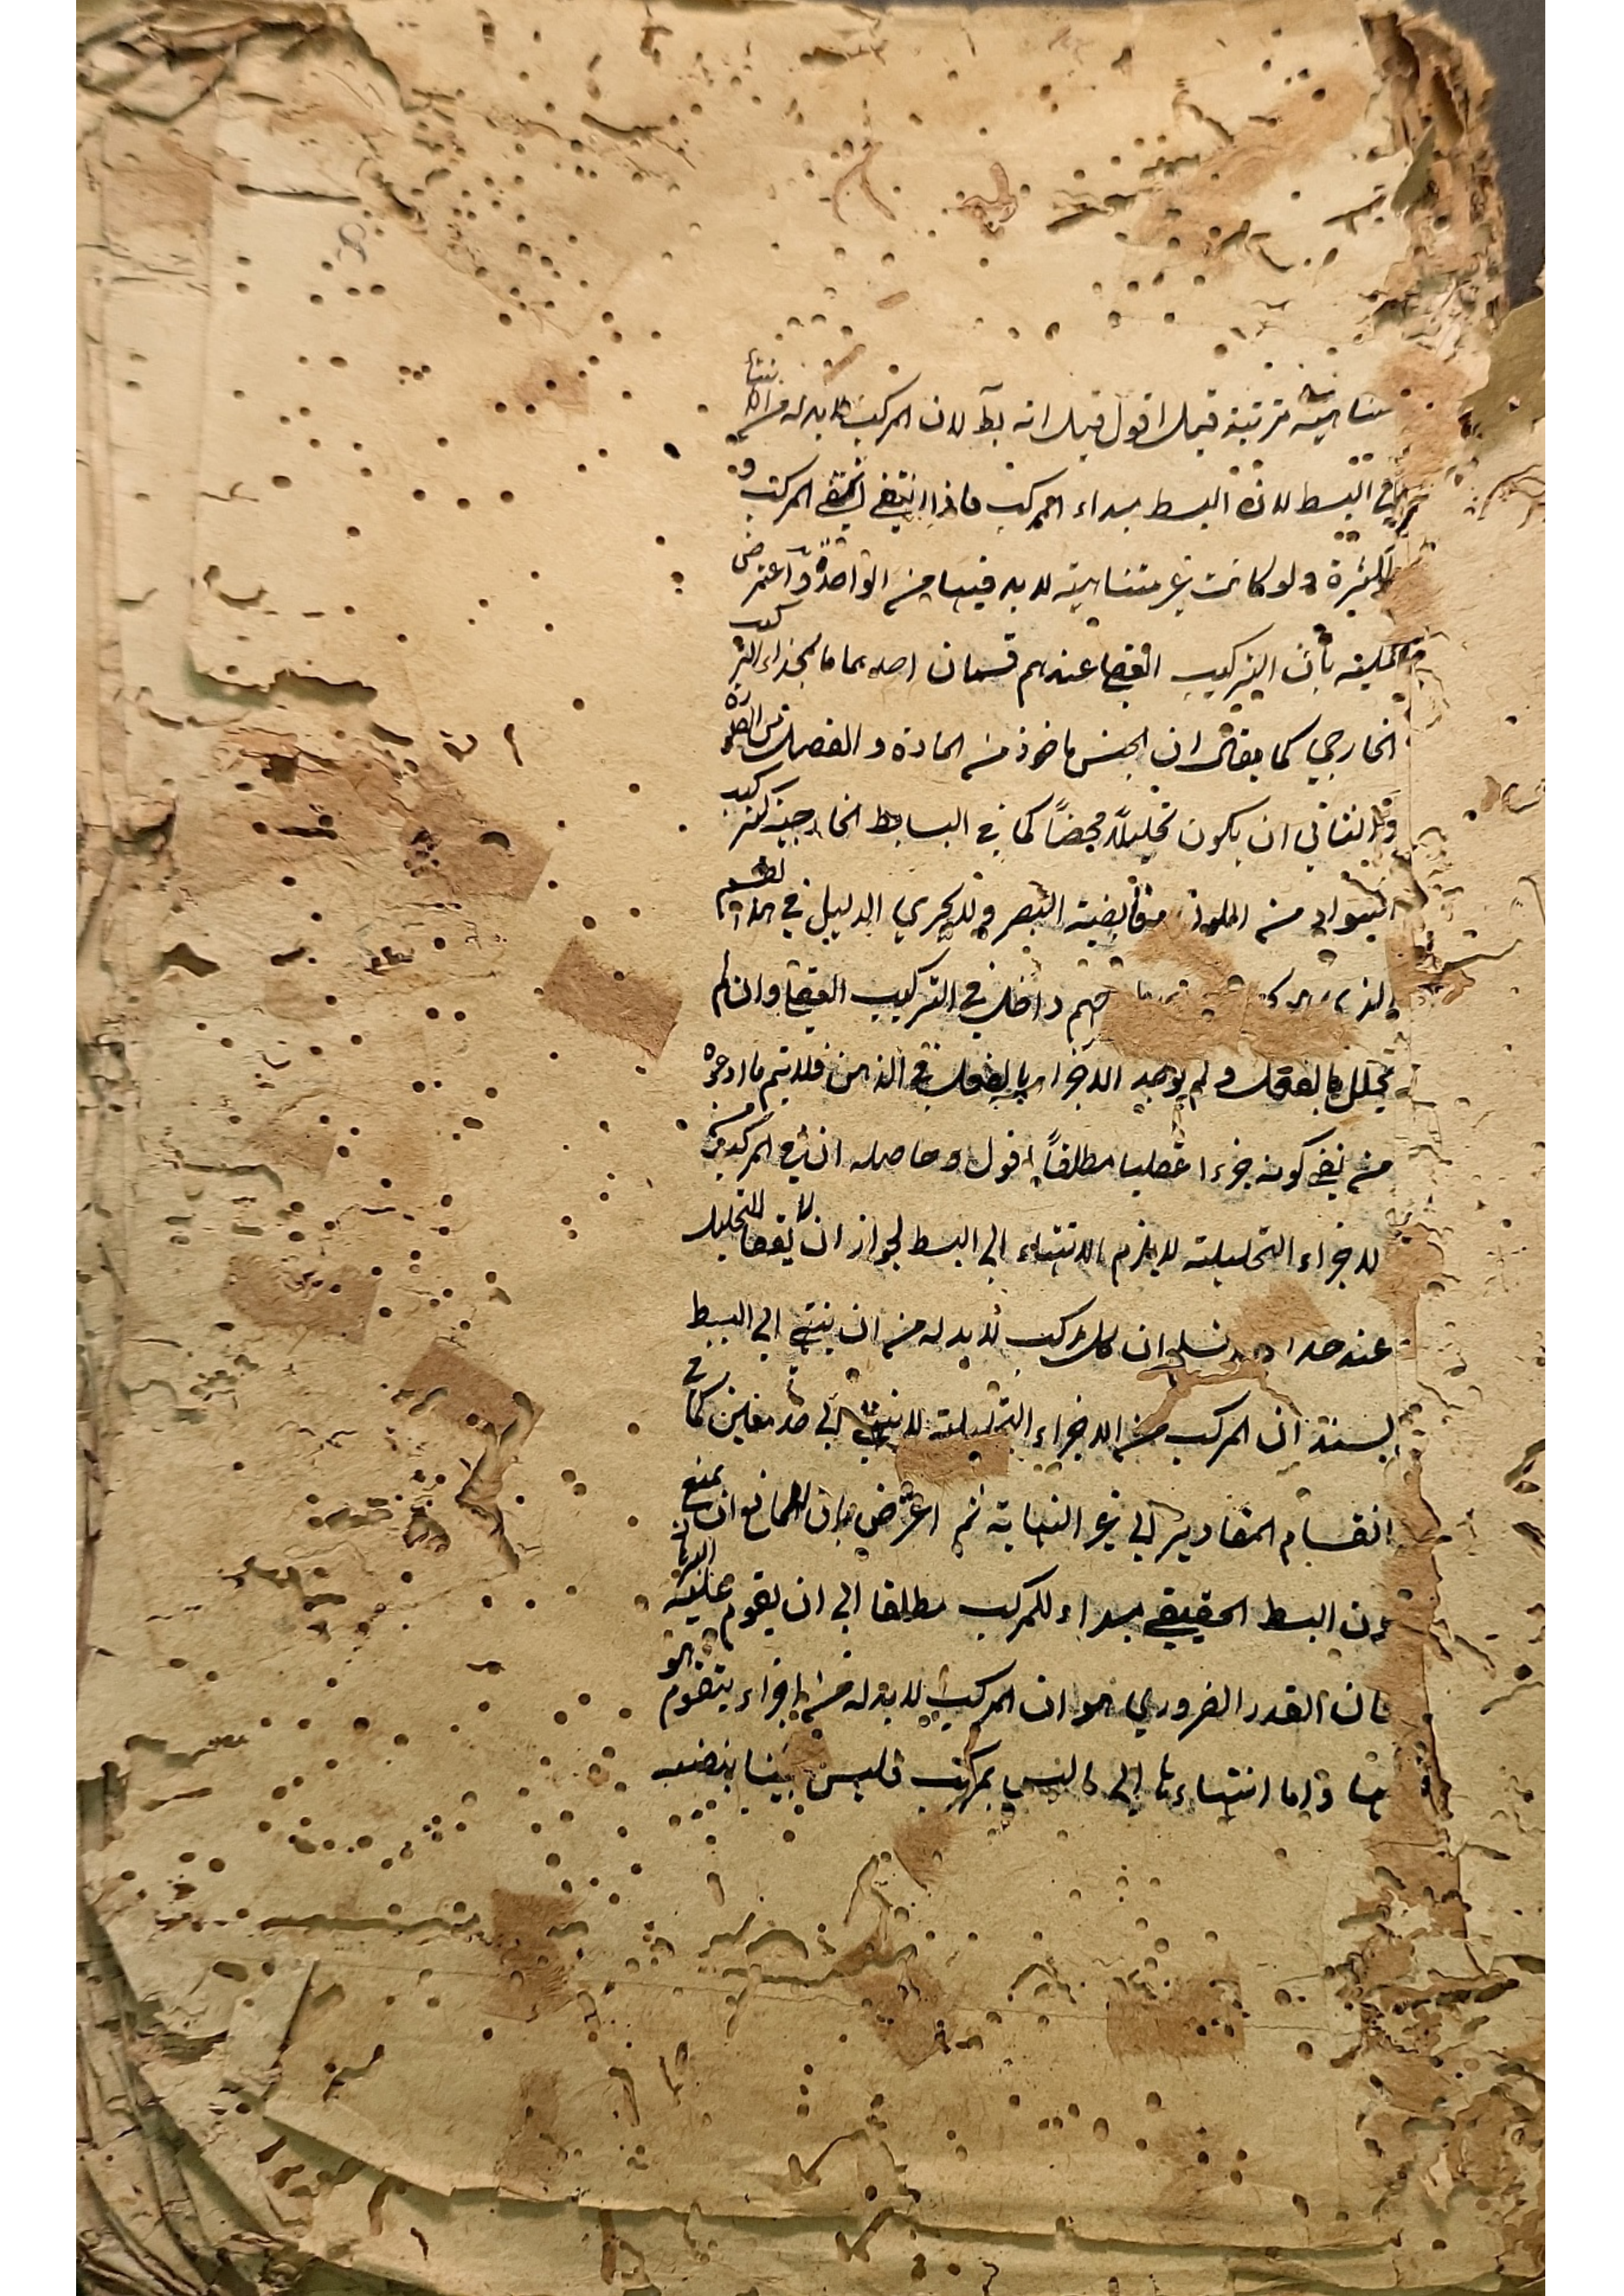 متناهية مترتبة قيل اقول قيل انه بط لان المركب لا بد له من الانتهاء
الى البسيط لان البسيط مبداء المركب فاذا انتفى انتفى المركب و
الكثرة ولو كانت غير متناهية لا بد فيها من الواحدة واعترض
عليه بأن التركيب العقلي عندهم قسمان احدهما ما بحذاء التركيب
الخارجي كما يقال ان الجنس ماخوذ من المادة والفصل من الصورة
والثاني ان يكون تحليلاً محضاً كما في البسايط الخارجية كتركيب
السواد من اللون و قابضية البصر ولا يجري الدليل في هذا القسم
داخل في التركيب العقلي وان لم
يحلل بالفعل ولم يوجد الاجزاء بالفعل في الذهن فلا يتم ما ادعوه
من نفي كونه جزءا عقليا مطلقاً اقول وحاصله ان في المركب من
الاجزاء التحليلية لا يلزم الانتهاء الى البسيط لجواز ان لا يقف التحليل
عند حد نسلم ان كل مركب لا بد له من ان ينتهي الى البسيط
لسند ان المركب من الاجزاء التحليلية لا ينتهي الى حد معين كما في
انقسام المقادير الى غير النهاية ثم اعترض بان للمانع ان يمنع
كون البسيط الحقيقي مبداء للمركب مطلقا الى ان يقوم عليه البرهان
فان القدر الضروري هو ان المركب لا بد له من اجزاء يتقوم هو
بها واما انتهاءها الى ما ليس بمركب فليس بينا بنفسه